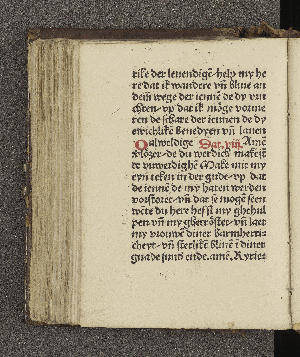 rike der leuendigē· help my he
re dat ik wandere vñ bliue an
dem wege der iēnē de dy vru
chten· vp dat ik möge vorme
ren de schare der iennen de dy
ewichlikē Benedyen vñ lauen
O alweldige Dat. viii. Amē
vlözer· de du werdich makest
de vnwerdighē Make mit my
eyn teken in der gude· vp dat
de iēnē de my haten werden
vorstoret· vñ dat se mogē seen
wēte du here hefst my ghehul
pen· vñ my ghetröstet· vñ laet
my vrouwē diner barmherti
cheyt· vñ sterlikē bliuē ī diner
gnade sund ende. amē. Kyriel